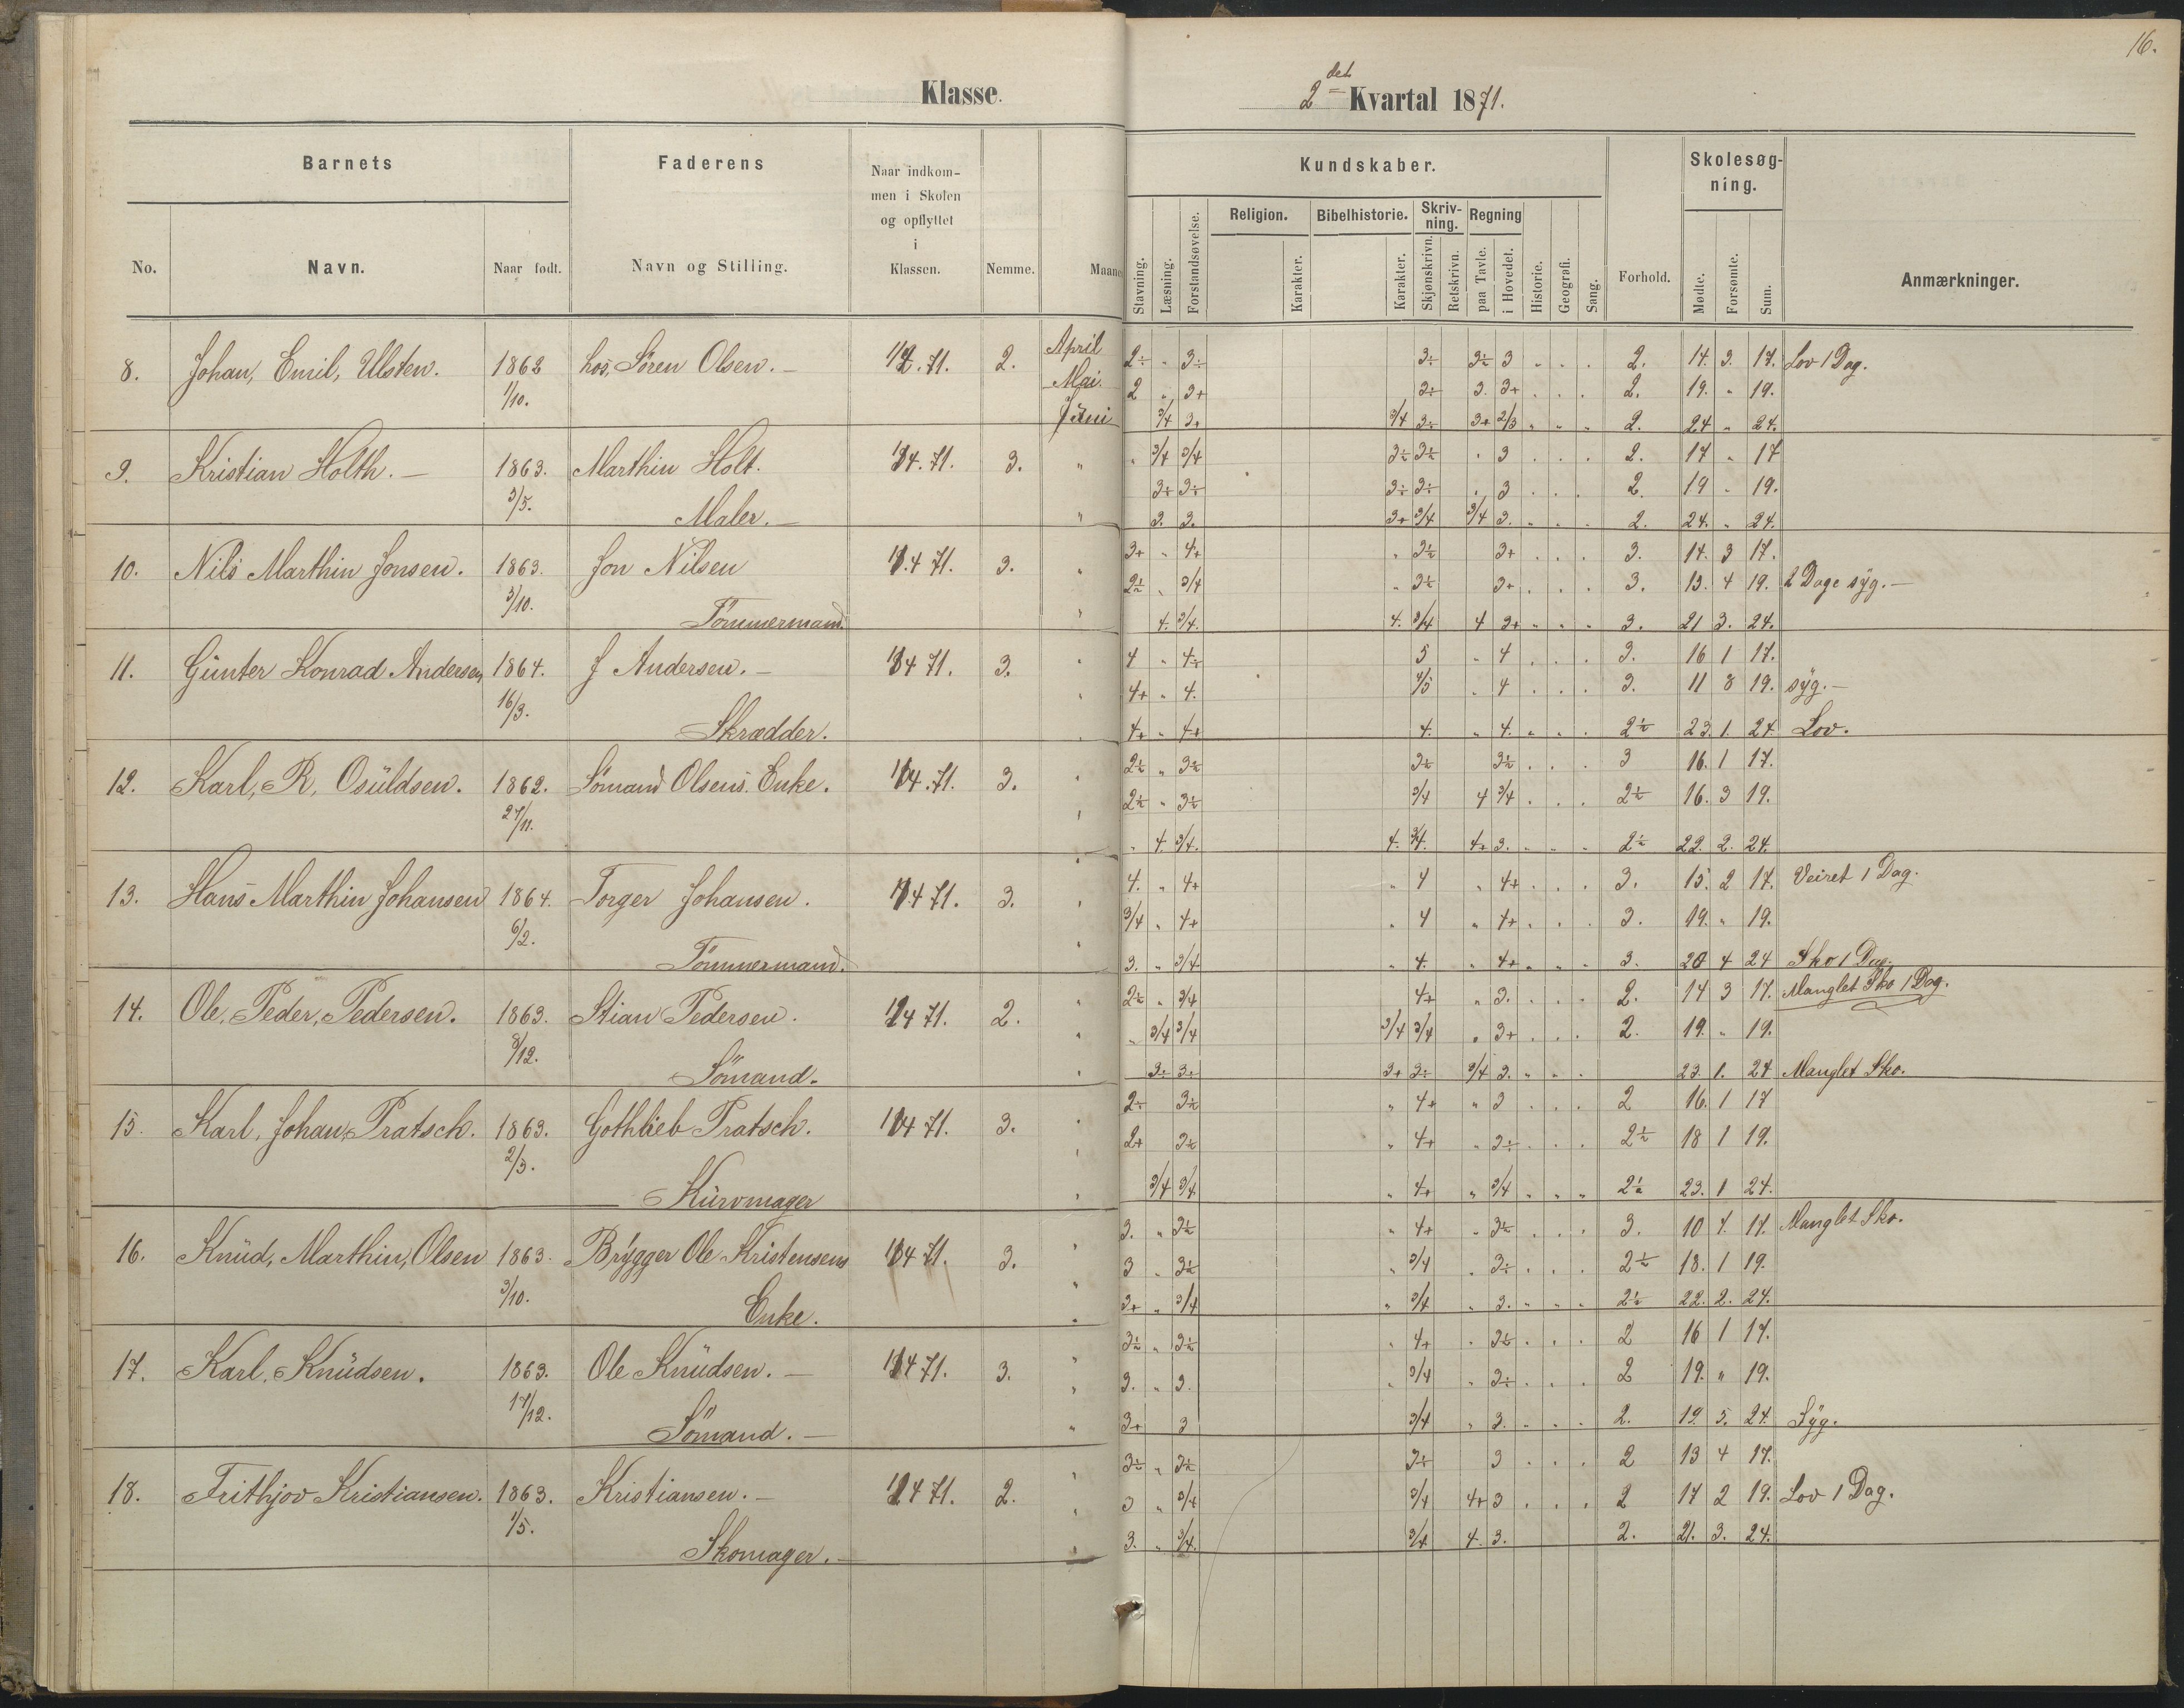 16.
Klasse.
2det Kvartal 1871.
Barnets
Faderens
Naar indkom-
men i Skolen
og opflyttet
i
Klassen.
Kundskaber.
Skolesøg-
ning.
No.
Navn.
Naar født.
Navn og Stilling.
Nemme.
Maane
Stavning.
Læsning.
Forstandsøvelse.
Religion.
Karakter.
Bibelhistorie.
Karakter.
Skriv-
ning.
Skjønskrivn.
Retskrivn.
Regning
paa Tavle.
i Hovedet.
Historie.
Geografi.
Sang.
Forhold.
Mødte.
Forsømte.
Sum.
Anmærkninger.
8. Johan, Emil, Ulsten. 1862 hos, Sören Olsen. 2. April 2÷ " 3÷ 3÷ 3 2. 14. 3. 17. Lov 1 Dag.
1/10. Mai. 2 " 3+ 3. 3+ 2. 19. " 19.
Juni 3/4 3+ 3/4 3÷ 3+ 2/3 " " " 2. 24 " 24.
9. Kristian Holth. 1863. Marthin Holt. 3. " " 3/4 3/4 3÷ 3÷ " 3 2. 17 " 17
3/5. 3÷ 3÷ 3÷ 3÷ 3 2. 19 " 19.
Maler. " 3. 3. 3+ 3/4 3/4 3. 2. 24. " 24.
10. Nils Marthin Jonsen. 1863. Jon Nilsen 3. " 3+ " 4+ " 3÷ 3+ 3. 14. 3 17.
3/10. 2÷ " 3/4 " 3÷ 3+ 3. 15. 4 19. 2 Dage syg.
Tömmermand. " 4. 3/4. 4. 3/4 4 3+ 3. 21 3. 24.
11. Günter Konrad Andersen 1864. J Andersen. 3. " 4 " 4÷ 5 " 4 3. 16 1 17.
16/3. " 4+ " 4. 4/5 " 4 3. 11 8 19. syg.
Skrædder. 4+ " 4+ 4. " 4. 2÷ 23. 1. 24. Lov.
12. Karl, R, Osüldsen. 1862. Sömand Olsens. Enke. 3. 2÷ " 3÷ 3÷ 3÷ 3 16. 1 17.
27/11. 2÷ " 3÷ 3/4 4 3/4 2÷ 16. 3 19.
" 4. 3/4. 4. 3/4. 4+ 3. 2÷ 22. 2. 24.
13. Hans Marthin Johansen 1864. Torger Johansen. 3. 4. " 4+ " 4 " 4+ 3. 15. 2 17. Veiret 1 Dag.
6/2. 3/4 " 4+ " 4 " 4+ 3. 19. " 19.
Tömmermand. 3. " 3/4 " 4. " 4+ 3. 20 4 24 Sko 1 Dag.
14. Ole, Peder, Pedersen. 1863. Stian Pedersen. 2. 2÷ " 3/4 4+ " 3. 2. 14 3 17. Manglet Sko 1 Dag.
8/12. " 3/4 3/4 3/4 3/4 " 3+ 2. 19. " 19.
Sömand. 3÷ 3÷ 3+ 3÷ 3/4 3. 23. 1. 24 Manglet Sko.
15. Karl, Johan, Pratsch. 1863. Gothlieb Pratsch. 3. 2÷ 3÷ " 4+ " 3 2 16. 1 17
2/3. 2+ 3÷ " 4+ " 3÷ 2÷ 18 1 19.
Kürvmager 3/4 3/4 " 4+ " 3/4 2÷ 23. 1 24.
16. Knüd, Marthin, Olsen 1863. Brÿgger Ole Kristensens 3. 3. " 3÷ " 4+ " 3÷ 3. 10 7. 17. Manglet Sko.
3/10. 3 " 3÷ " 3/4 " 3÷ 2÷ 18. 1 19.
Enke. 3+ " 3/4 " 3/4 " 3. 2÷ 22. 2. 24.
17. Karl, Knüdsen. 1863. Ole Knüdsen. 3. 3÷ " 3÷ " 4+ " 3÷ 2 16 1 17.
17/12. 3. " 3. " 3/4 " 3÷ 2 19. " 19.
Sömand. 3+ 3 3/4 " 3. 2. 19. 5. 24. Syg.
18. Frithjov Kristiansen. 1863. Kristiansen. 2. 3÷ " 3÷ 3÷ 3 2 13 4 17.
1/5. 3 " 3/4 3/4 4+ 3 2 17 2 19. Lov 1 Dag.
Skomager. 3. " 3/4. 3/4 4. 3. 2. 21. 3. 24.